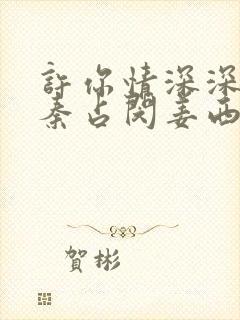 許你情深深
秦占閔姜西
賀彬